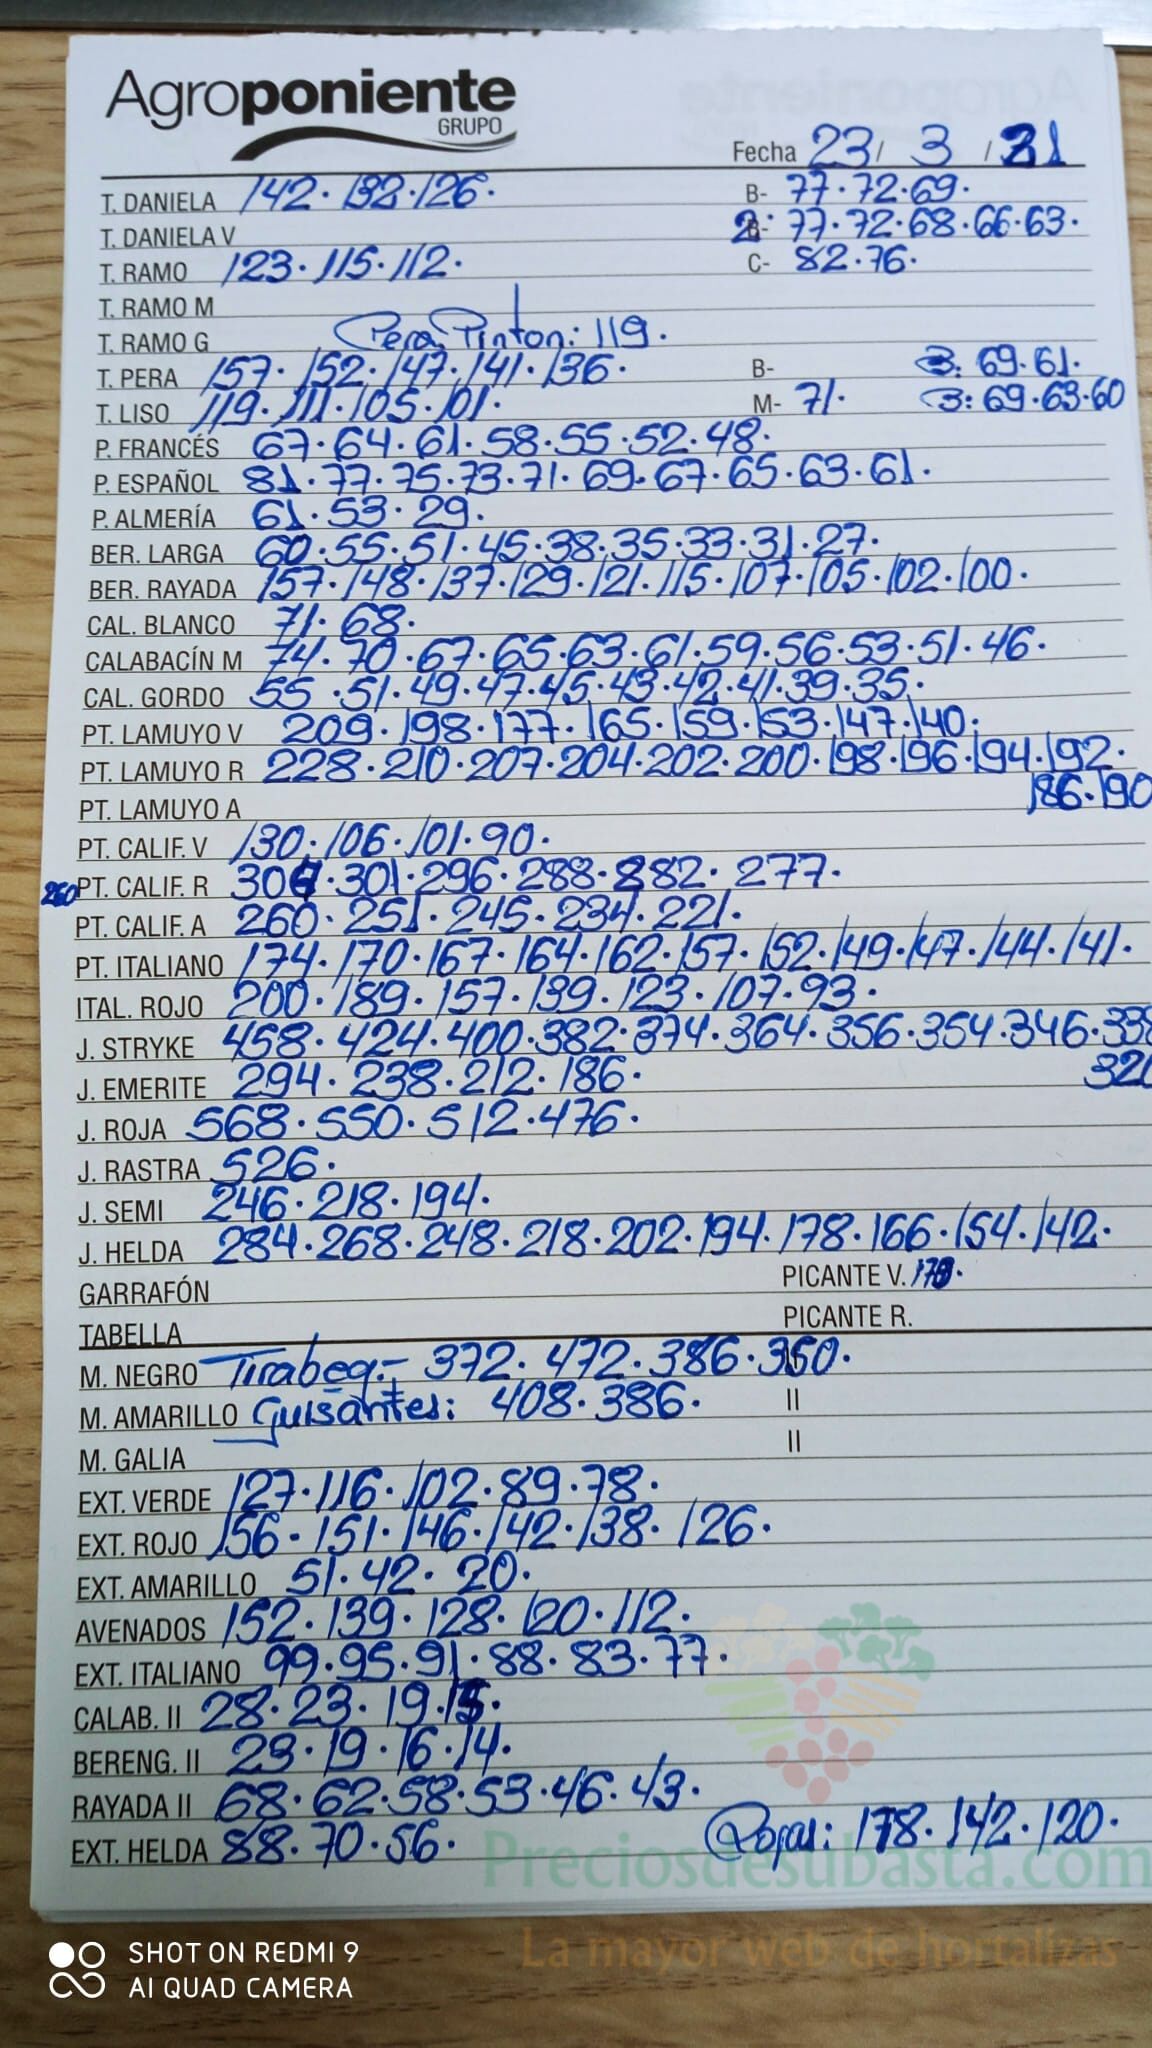 Agroponiente
GRUPO
Fecha 23/ 3 /21
T. DANIELA 142. 132. 126. B- 77. 72. 69.
T. DANIELA V 2: 77. 72. 68. 66. 63.
T. RAMO 123. 115. 112. C- 82. 76.
T. RAMO M
T. RAMO G Pera Pinton: 119.
T. PERA 157. 152. 147. 141. 136. B- 3: 69. 61.
T. LISO 119. 111. 105. 101. M- 71. 3: 69. 63. 60
P. FRANCÉS 67. 64. 61. 58. 55. 52. 48.
P. ESPAÑOL 81. 77. 75. 73. 71. 69. 67. 65. 63. 61.
P. ALMERÍA 61. 53. 29.
BER. LARGA 60. 55. 51. 45. 38. 35. 33. 31. 27.
BER. RAYADA 157. 148. 137. 129. 121. 115. 107. 105. 102. 100.
CAL. BLANCO 71. 68.
CALABACÍN M 74. 70. 67. 65. 63. 61. 59. 56. 53. 51. 46.
CAL. GORDO 55. 51. 49. 47. 45. 43. 42. 41. 39. 35.
PT. LAMUYO V 209. 198. 177. 165. 159. 153. 147. 140.
PT. LAMUYO R 228. 210. 207. 204. 202. 200. 198. 196. 194. 192.
PT. LAMUYO A 186. 190
PT. CALIF. V 130. 106. 101. 90.
260 PT. CALIF. R 301. 296. 288. 282. 277.
PT. CALIF. A 260. 251. 245. 234. 221.
PT. ITALIANO 174. 170. 167. 164. 162. 157. 152. 149. 147. 144. 141.
ITAL. ROJO 200. 189. 157. 139. 123. 107. 93.
J. STRYKE 458. 424. 400. 382. 374. 364. 356. 354. 346. 338
J. EMERITE 294. 238. 212. 186.
J. ROJA 568. 550. 512. 476.
J. RASTRA 526.
J. SEMI 246. 218. 194.
J. HELDA 284. 268. 248. 218. 202. 194. 178. 166. 154. 142.
GARRAFÓN PICANTE V.
TABELLA PICANTE R.
M. NEGRO Tirabeq.- 372. 472. 386. 350.
M. AMARILLO Guisantes: 408. 386. II
M. GALIA II
EXT. VERDE 127. 116. 102. 89. 78.
EXT. ROJO 156. 151. 146. 142. 138. 126.
EXT. AMARILLO 51. 42. 20.
AVENADOS 152. 139. 128. 120. 112.
EXT. ITALIANO 99. 95. 91. 88. 83. 77.
CALAB. II 28. 23. 19. 15.
BERENG. II 23. 19. 16. 14.
RAYADA II 68. 62. 58. 53. 46. 43.
EXT. HELDA 88. 70. 56. Rojas: 178. 142. 120.
Preciosdesubasta.com
La mayor web de hortalizas
SHOT ON REDMI 9
AI QUAD CAMERA